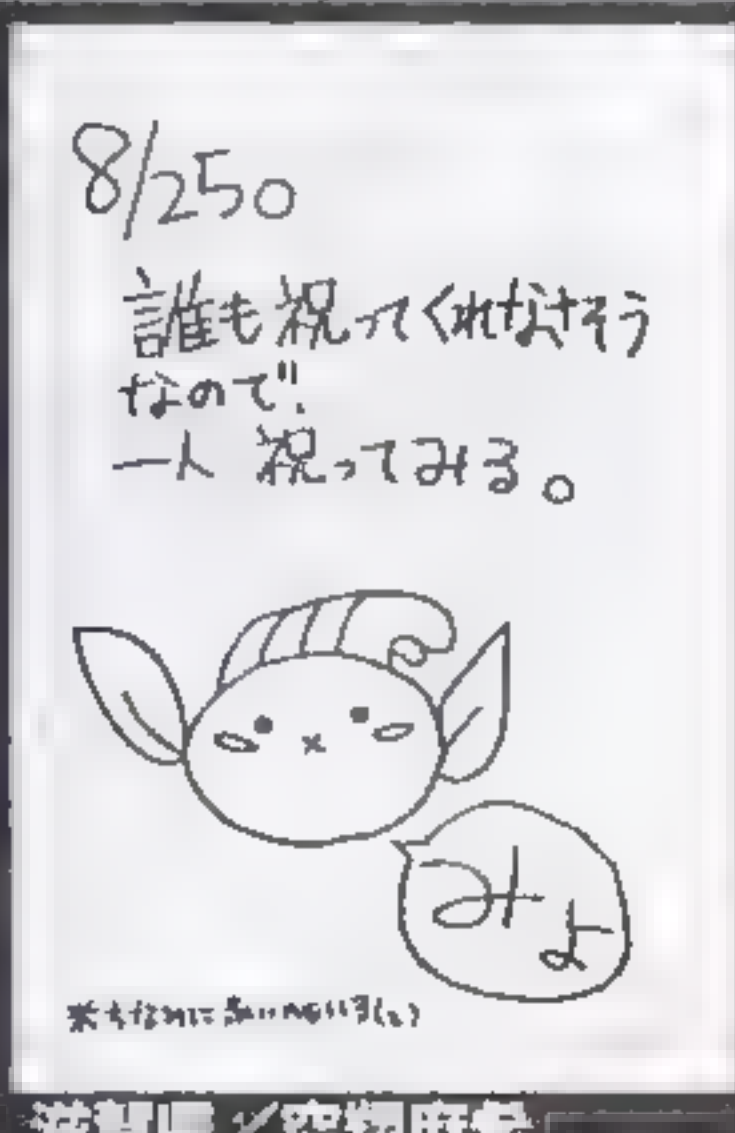 8/250
誰も祝ってくれなさそう
なので、
一人祝ってみる。
みよ